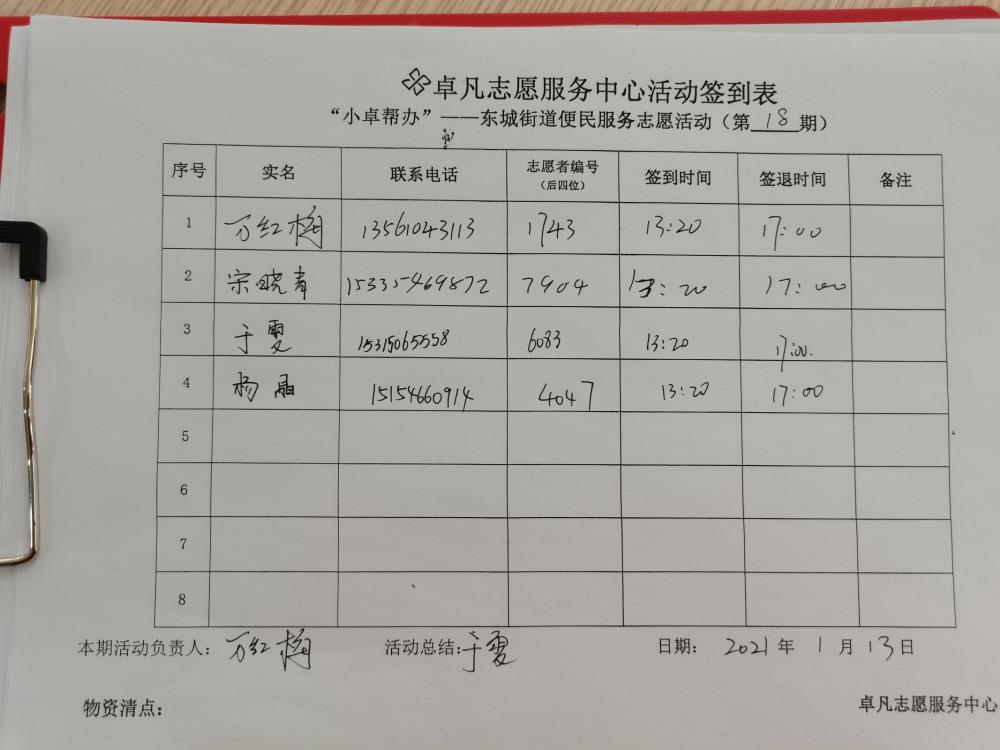 卓凡志愿服务中心活动签到表
“小卓帮办”——东城街道便民服务志愿活动（第 18 期）
序号 实名 联系电话 志愿者编号（后四位） 签到时间 签退时间 备注
1 万红梅 13561043113 1743 13:20 17:00
2 宋晓青 15335469872 7904 13:20 17:00
3 于雯 15315065558 6083 13:20 17:00.
4 杨晶 15154660914 4047 13:20 17:00
5
6
7
8
本期活动负责人：万红梅 活动总结：于雯 日期： 2021 年 1 月 13 日
物资清点： 卓凡志愿服务中心